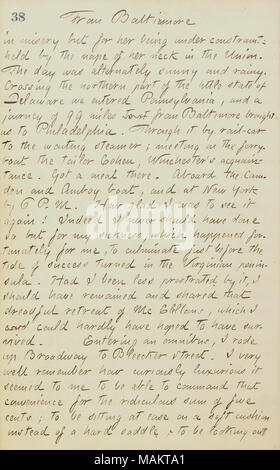 38
From Baltimore
in misery but for her being under constraint—
held by the nape of her neck in the Union.
The day was alternately sunny and rainy.
Crossing the northern part of the little state of
Delaware we entered Pennsylvania, and a
journey of 99 miles from Baltimore brought
us to Philadelphia. Through it by rail-car
to the waiting steamer; meeting in the ferry
boat the tailor Cohen, Winchester's acquain-
tance. Got a meal there. Aboard the Cam-
den and Amboy boat, and at New York
by 6 P.M. How glad I was to see it
again! Indeed I never should have done
so but for my sickness, which happened for-
tunately for me, to culminate just before the
tide of success turned in the Virginian penin-
sula. Had I been less prostrated by it, I
should have remained and shared that
dreadful retreat of McClellans, which I
could hardly have hoped to have sur-
vived. Entering an omnibus, I rode
up Broadway to Bleecker Street. I very
well remember how curiously luxurious it
seemed to me to be able to command that
convenience for the ridiculous sum of five
cents; to be sitting at ease on a soft cushion
instead of a hard saddle; to be looking out
alamy
Image ID: MAKTA1
www.alamy.com